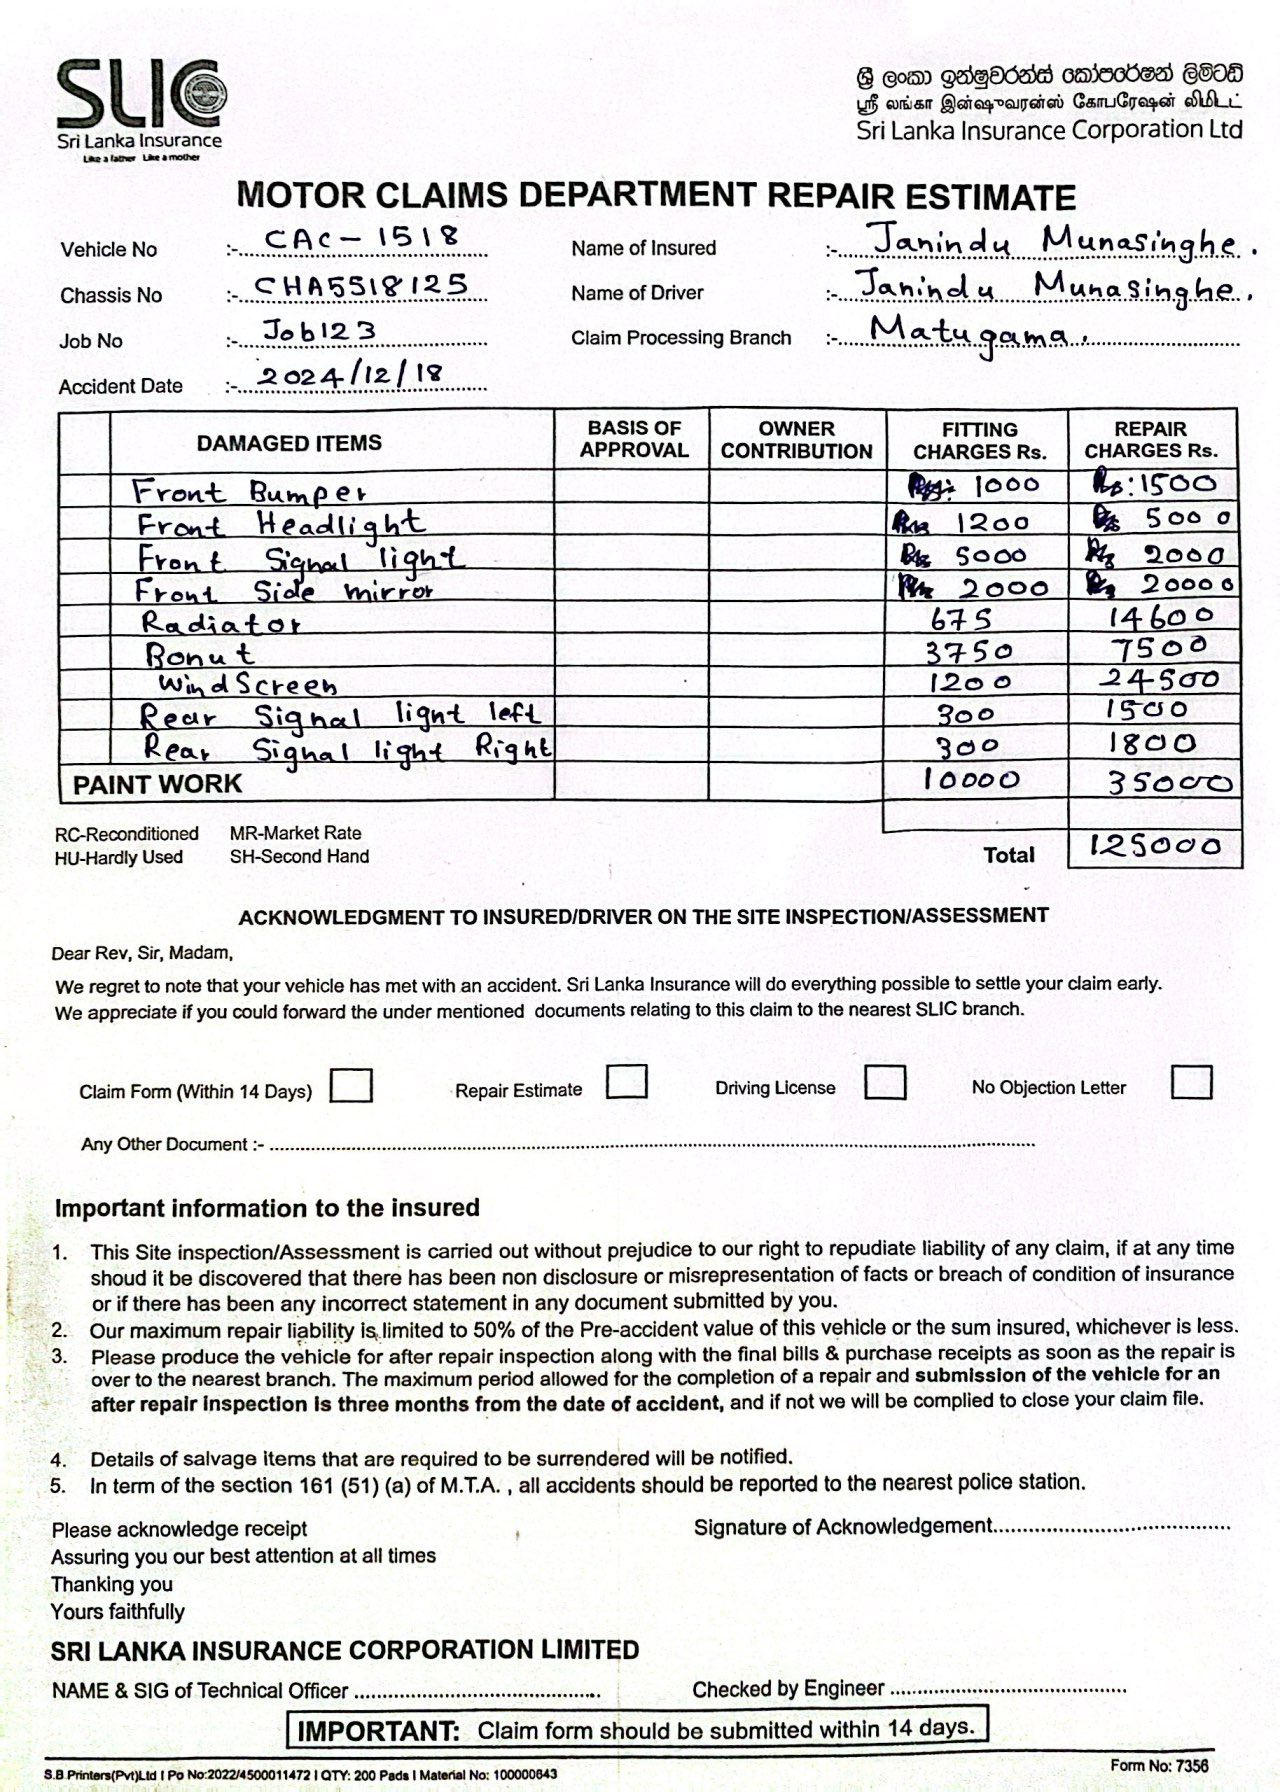 SLIC
Sri Lanka Insurance
Like a father Like a mother
ශ්‍රී ලංකා ඉන්ෂුවරන්ස් කෝපරේෂන් ලිමිටඩ්
ஸ்ரீ லங்கா இன்ஷுவரன்ஸ் கோபரேஷன் லிமிடட்
Sri Lanka Insurance Corporation Ltd
MOTOR CLAIMS DEPARTMENT REPAIR ESTIMATE
Vehicle No :- CAC-1518 Name of Insured :- Janindu Munasinghe.
Chassis No :- CHA5518125 Name of Driver :- Janindu Munasinghe.
Job No :- Job123 Claim Processing Branch :- Matugama.
Accident Date :- 2024/12/18
DAMAGED ITEMS BASIS OF APPROVAL OWNER CONTRIBUTION FITTING CHARGES Rs. REPAIR CHARGES Rs.
Front Bumper 1000 1500
Front Headlight 1200 5000
Front Signal light 5000 2000
Front Side mirror 2000 20000
Radiator 675 14600
Bonut 3750 7500
WindScreen 1200 24500
Rear Signal light left 300 1500
Rear Signal light Right 300 1800
PAINT WORK 10000 35000
RC-Reconditioned MR-Market Rate
HU-Hardly Used SH-Second Hand Total 125000
ACKNOWLEDGMENT TO INSURED/DRIVER ON THE SITE INSPECTION/ASSESSMENT
Dear Rev, Sir, Madam,
We regret to note that your vehicle has met with an accident. Sri Lanka Insurance will do everything possible to settle your claim early.
We appreciate if you could forward the under mentioned documents relating to this claim to the nearest SLIC branch.
Claim Form (Within 14 Days) Repair Estimate Driving License No Objection Letter
Any Other Document :-
Important information to the insured
1. This Site inspection/Assessment is carried out without prejudice to our right to repudiate liability of any claim, if at any time
shoud it be discovered that there has been non disclosure or misrepresentation of facts or breach of condition of insurance
or if there has been any incorrect statement in any document submitted by you.
2. Our maximum repair liability is limited to 50% of the Pre-accident value of this vehicle or the sum insured, whichever is less.
3. Please produce the vehicle for after repair inspection along with the final bills & purchase receipts as soon as the repair is
over to the nearest branch. The maximum period allowed for the completion of a repair and submission of the vehicle for an
after repair inspection is three months from the date of accident, and if not we will be complied to close your claim file.
4. Details of salvage items that are required to be surrendered will be notified.
5. In term of the section 161 (51) (a) of M.T.A. , all accidents should be reported to the nearest police station.
Please acknowledge receipt Signature of Acknowledgement
Assuring you our best attention at all times
Thanking you
Yours faithfully
SRI LANKA INSURANCE CORPORATION LIMITED
NAME & SIG of Technical Officer Checked by Engineer
IMPORTANT: Claim form should be submitted within 14 days.
S.B Printers(Pvt)Ltd I Po No:2022/4500011472 I QTY: 200 Pads I Material No: 100000643 Form No: 7356